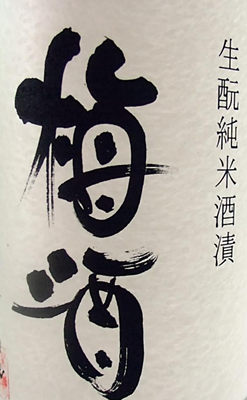 生酛純米酒漬
梅酒